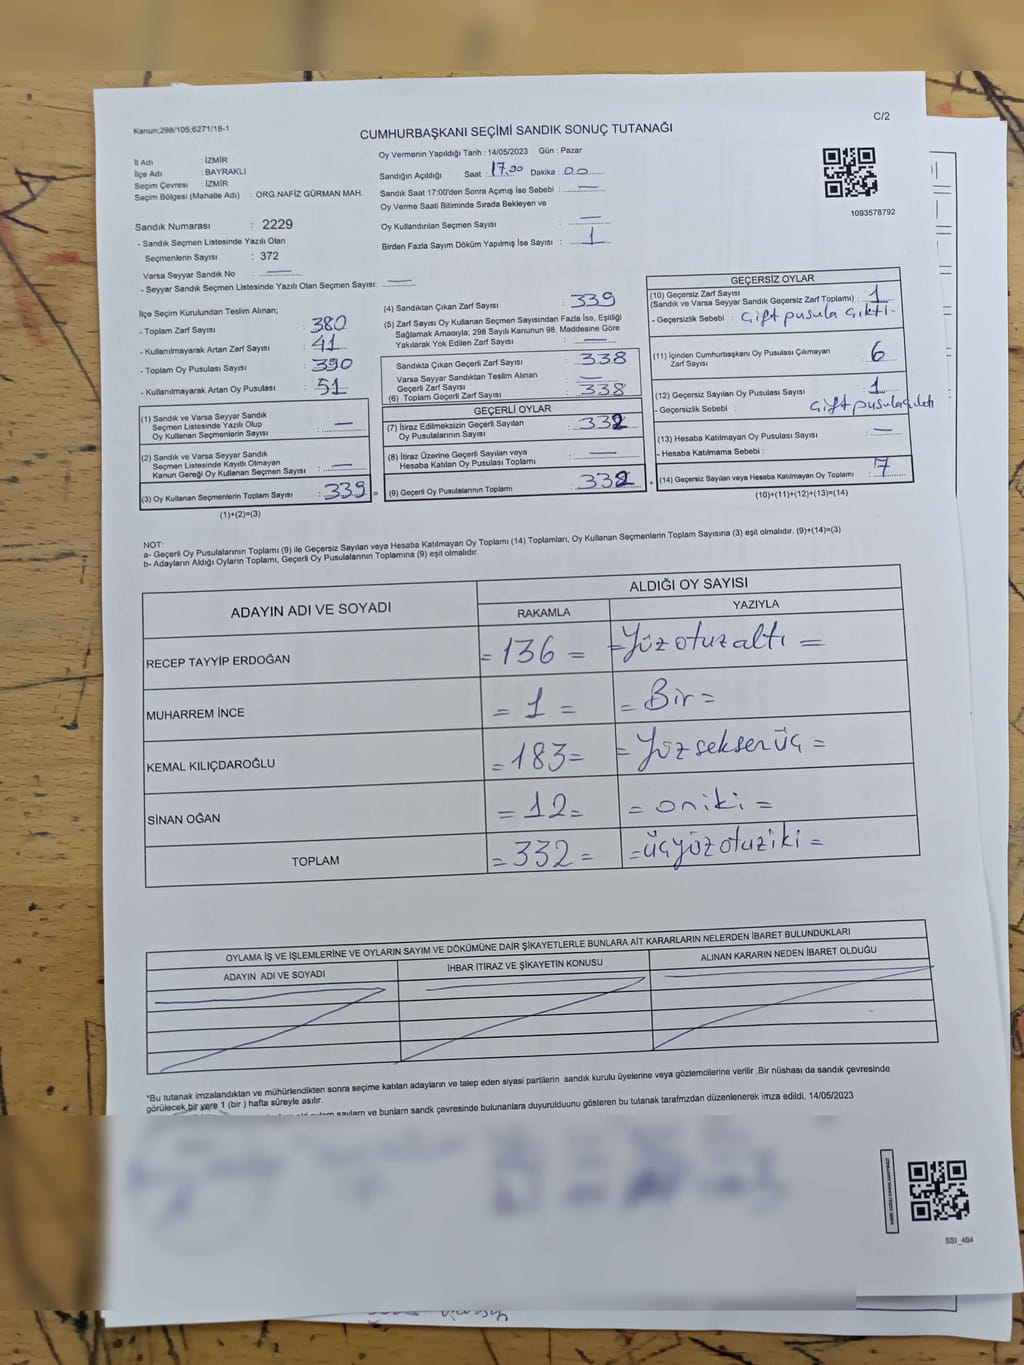 Kanun;298/105;6271/18-1
C/2
CUMHURBAŞKANI SEÇİMİ SANDIK SONUÇ TUTANAĞI
İl Adı : İZMİR
İlçe Adı : BAYRAKLI
Seçim Çevresi : İZMİR
Seçim Bölgesi (Mahalle Adı) : ORG.NAFİZ GÜRMAN MAH.
Sandık Numarası : 2229
- Sandık Seçmen Listesinde Yazılı Olan
Seçmenlerin Sayısı : 372
Varsa Seyyar Sandık No : —
- Seyyar Sandık Seçmen Listesinde Yazılı Olan Seçmen Sayısı: —
Oy Vermenin Yapıldığı Tarih : 14/05/2023 Gün : Pazar
Sandığın Açıldığı Saat : 17.00 Dakika : 00
Sandık Saat 17:00'den Sonra Açımış İse Sebebi : —
Oy Verme Saati Bitiminde Sırada Bekleyen ve
Oy Kullandırılan Seçmen Sayısı : —
Birden Fazla Sayım Döküm Yapılmış İse Sayısı : 1
1093578792
İlçe Seçim Kurulundan Teslim Alınan;
- Toplam Zarf Sayısı : 380
- Kullanılmayarak Artan Zarf Sayısı : 41
- Toplam Oy Pusulası Sayısı : 390
- Kullanılmayarak Artan Oy Pusulası : 51
(1) Sandık ve Varsa Seyyar Sandık
Seçmen Listesinde Yazılı Olup
Oy Kullanan Seçmenlerin Sayısı : —
(2) Sandık ve Varsa Seyyar Sandık
Seçmen Listesinde Kayıtlı Olmayan
Kanun Gereği Oy Kullanan Seçmen Sayısı : —
(3) Oy Kullanan Seçmenlerin Toplam Sayısı : 339 =
(1)+(2)=(3)
(4) Sandıktan Çıkan Zarf Sayısı : 339
(5) Zarf Sayısı Oy Kullanan Seçmen Sayısından Fazla İse, Eşitliği
Sağlamak Amacıyla; 298 Sayılı Kanunun 98. Maddesine Göre
Yakılarak Yok Edilen Zarf Sayısı : —
Sandıkta Çıkan Geçerli Zarf Sayısı : 338
Varsa Seyyar Sandıktan Teslim Alınan
Geçerli Zarf Sayısı : —
(6) Toplam Geçerli Zarf Sayısı : 338
GEÇERLİ OYLAR
(7) İtiraz Edilmeksizin Geçerli Sayılan
Oy Pusulalarının Sayısı : 332
(8) İtiraz Üzerine Geçerli Sayılan veya
Hesaba Katılan Oy Pusulası Toplamı : —
(9) Geçerli Oy Pusulalarının Toplamı : 332 +
GEÇERSİZ OYLAR
(10) Geçersiz Zarf Sayısı
(Sandık ve Varsa Seyyar Sandık Geçersiz Zarf Toplamı) : 1
- Geçersizlik Sebebi : Çift pusula çıktı.
(11) İçinden Cumhurbaşkanı Oy Pusulası Çıkmayan
Zarf Sayısı : 6
(12) Geçersiz Sayılan Oy Pusulası Sayısı : 1
- Geçersizlik Sebebi : Çift pusula
(13) Hesaba Katılmayan Oy Pusulası Sayısı : —
- Hesaba Katılmama Sebebi :
(14) Geçersiz Sayılan veya Hesaba Katılmayan Oy Toplamı : 7
(10)+(11)+(12)+(13)=(14)
NOT:
a- Geçerli Oy Pusulalarının Toplamı (9) ile Geçersiz Sayılan veya Hesaba Katılmayan Oy Toplamı (14) Toplamları, Oy Kullanan Seçmenlerin Toplam Sayısına (3) eşit olmalıdır. (9)+(14)=(3)
b- Adayların Aldığı Oyların Toplamı, Geçerli Oy Pusulalarının Toplamına (9) eşit olmalıdır.
ADAYIN ADI VE SOYADI
ALDIĞI OY SAYISI
RAKAMLA YAZIYLA
RECEP TAYYİP ERDOĞAN = 136 = = Yüz otuz altı =
MUHARREM İNCE = 1 = = Bir =
KEMAL KILIÇDAROĞLU = 183 = = Yüz seksen üç =
SİNAN OĞAN = 12 = = oniki =
TOPLAM = 332 = = üçyüz otuziki =
OYLAMA İŞ VE İŞLEMLERİNE VE OYLARIN SAYIM VE DÖKÜMÜNE DAİR ŞİKAYETLERLE BUNLARA AİT KARARLARIN NELERDEN İBARET BULUNDUKLARI
ADAYIN ADI VE SOYADI İHBAR İTİRAZ VE ŞİKAYETİN KONUSU ALINAN KARARIN NEDEN İBARET OLDUĞU
*Bu tutanak imzalandıktan ve mühürlendikten sonra seçime katılan adayların ve talep eden siyasi partilerin sandık kurulu üyelerine veya gözlemcilerine verilir .Bir nüshası da sandık çevresinde
görülecek bir yere 1 (bir ) hafta süreyle asılır.
ve bunların sandk çevresinde bulunanlara duyurulduunu gösteren bu tutanak tarafmzdan düzenlenerek imza edildi. 14/05/2023
SSI_404